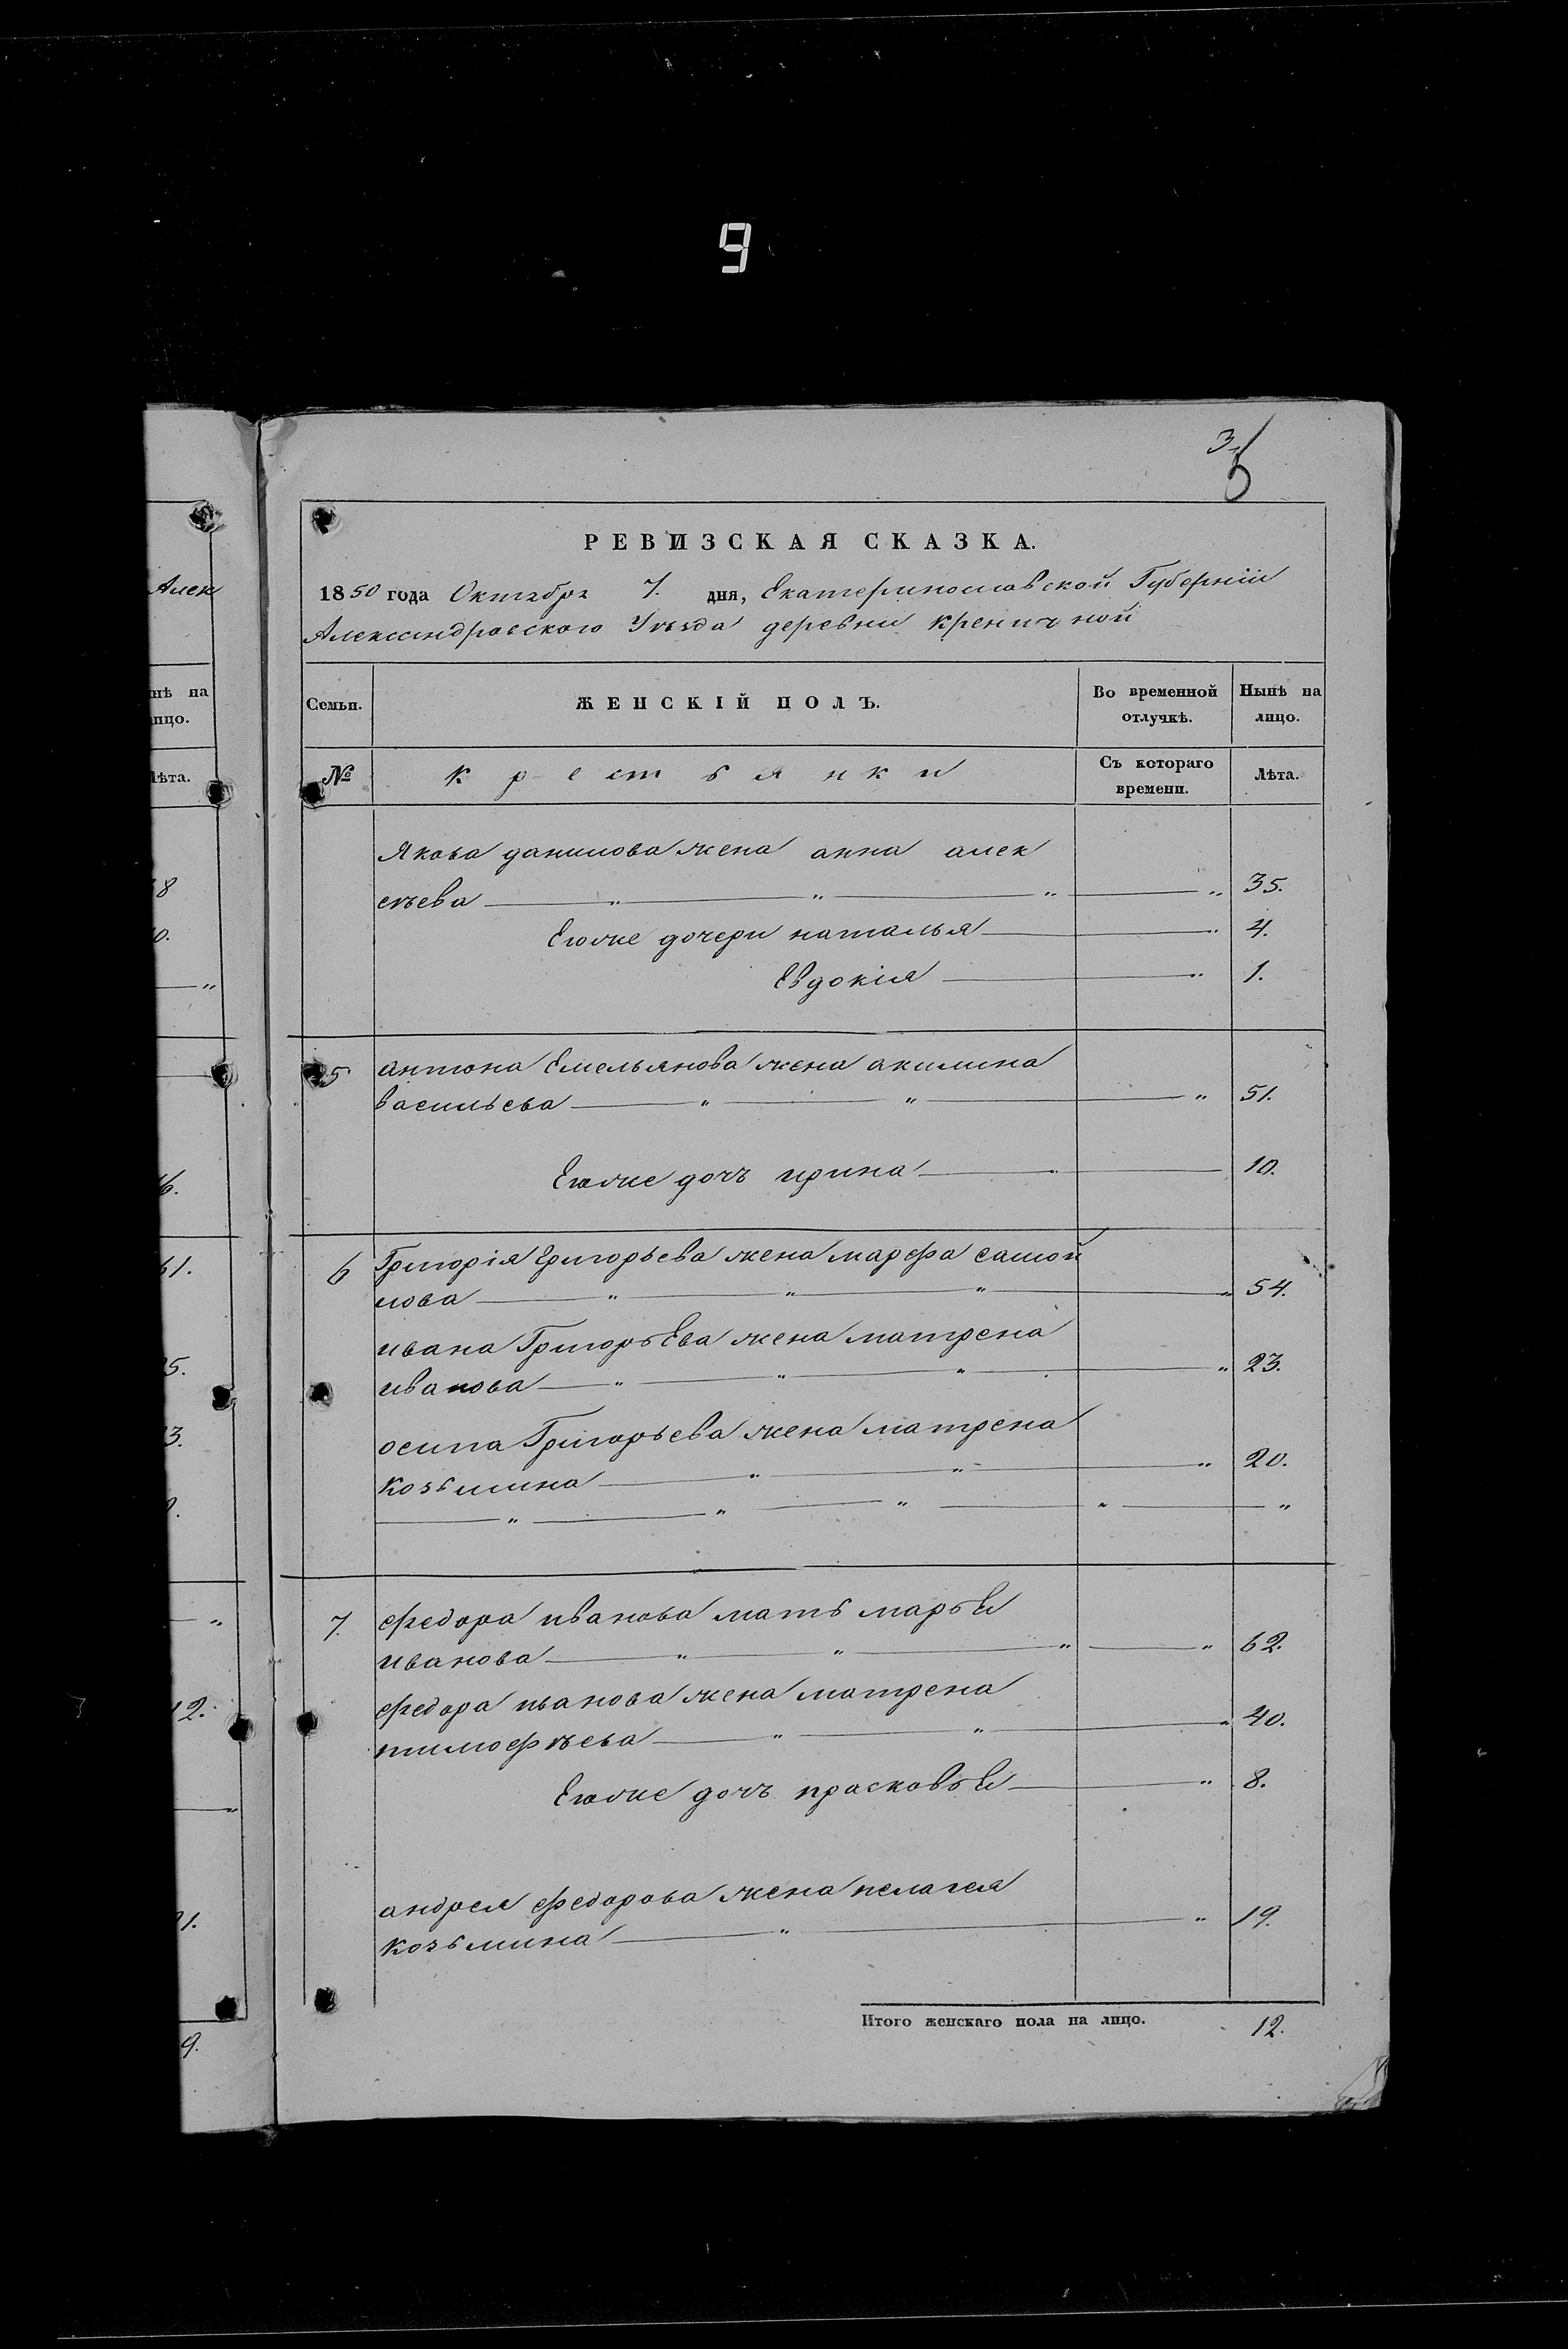 9
3
5
РЕВИЗСКАЯ СКАЗКА.
1850 года Октября 7. дня, Екатеринославской Губерніи
Александровского Уѣзда деревни креничной
Семьи. ЖЕНСКІЙ ПОЛЪ. Во временной отлучкѣ. Нынѣ на лицо.
№ крестьянки Съ котораго времени. Лѣта.
Якова данилова жена анна алек
сѣева — „ — „ — „ — „ 35.
Егоже дочери наталья — „ 4.
Евдокія — „ 1.
5 антона Емельянова жена акилина
васильева — „ — „ — „ 51.
Егоже дочъ ирина — 10.
6 Григорія Григорьева жена марфа самой
лова — „ — „ — „ — „ 54.
ивана Григорьева жена матрена
иванова — „ — „ — „ — „ 23.
осипа Григорьева жена матрена
козьмина — „ — „ — „ 20.
— „ — „ — „ — „ — „
7. федора иванова мать марья
иванова — „ — „ — „ — „ 62.
федора иванова жена матрена
тимофѣева — „ — „ — „ 40.
Егоже дочъ прасковья — „ 8.
андрея федорова жена пелагея
козьмина — „ — „ 19.
Итого женскаго пола на лицо. 12.
Алек
нѣ на
лицо.
Лѣта.
8
0.
„
6.
61.
5.
3.
„
12.
„
1.
9.